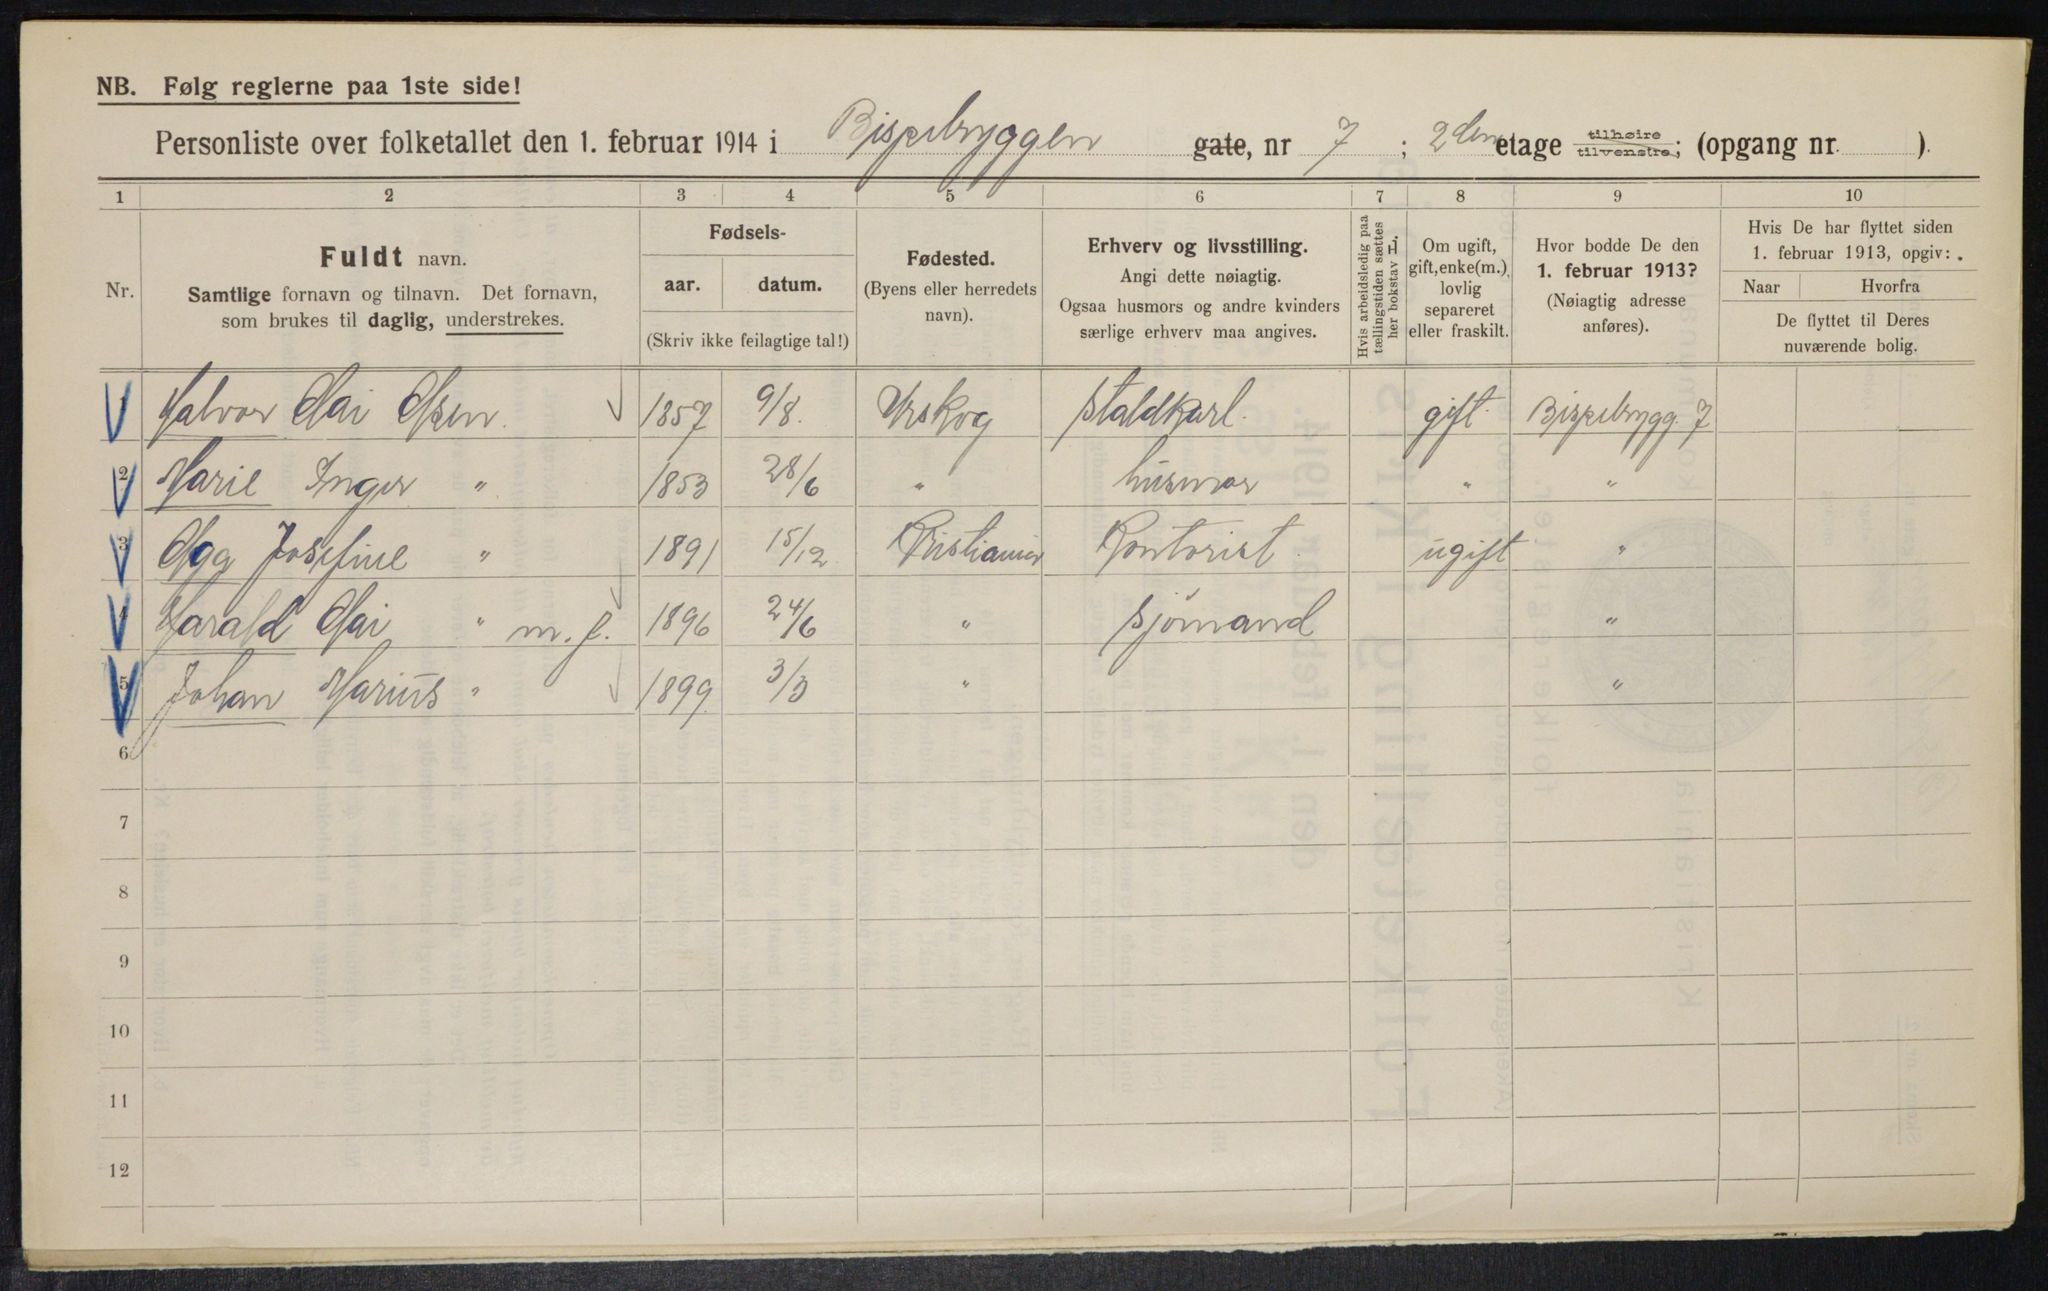 NB. Følg reglerne paa 1ste side!
Personliste over folketallet den 1. februar 1914 i Bispebryggen gate, nr 7 ; 2den etage tilhøire tilvenstre; (opgang nr. ).
1 2 3 4 5 6 7 8 9 10
Nr.
Fuldt navn.
Samtlige fornavn og tilnavn. Det fornavn,
som brukes til daglig, understrekes.
Fødsels-
aar. datum.
(Skriv ikke feilagtige tal!)
Fødested.
(Byens eller herredets
navn).
Erhverv og livsstilling.
Angi dette nøiagtig.
Ogsaa husmors og andre kvinders
særlige erhverv maa angives.
Hvis arbeidsledig paa
tællingstiden sættes
her bokstav L.
Om ugift,
gift, enke(m.),
lovlig
separeret
eller fraskilt.
Hvor bodde De den
1. februar 1913?
(Nøiagtig adresse
anføres).
Hvis De har flyttet siden
1. februar 1913, opgiv:
Naar Hvorfra
De flyttet til Deres
nuværende bolig.
1 Halvor Olsen 1857 9/8. Urskog Staldkarl. gift. Bispebrygg. 7
2 Marie Inger " 1853 28/6 " husmor " "
3 Josefine " 1891 15/12 Kristiania Kontorist ugift "
4 Harald " m. f. 1896 24/6 " sjømand "
5 Johan Marius " 1899 3/3 " "
6
7
8
9
10
11
12